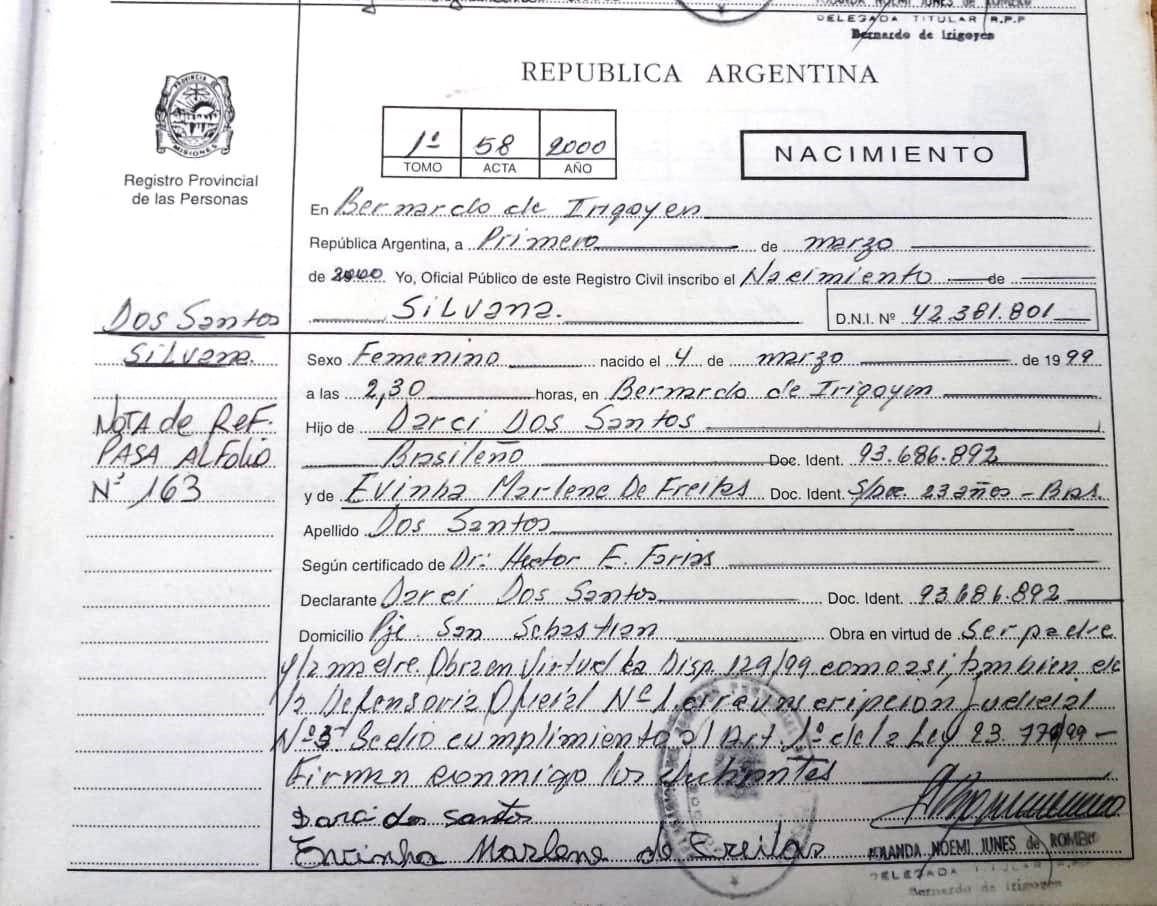 DELEGADA TITULAR R.P.P
Bernardo de Irigoyen
REPUBLICA ARGENTINA
PROVINCIA DE
MISIONES
Registro Provincial
de las Personas
1º 58 2000
TOMO ACTA AÑO
NACIMIENTO
En Bernardo de Irigoyen
República Argentina, a Primero de marzo
de 2000 Yo, Oficial Público de este Registro Civil inscribo el Nacimiento de
Silvana. D.N.I. Nº 42.381.801
Dos Santos
Silvana.
Sexo Femenino nacido el 4 de marzo de 1999
a las 2,30 horas, en Bernardo de Irigoyen
NOTA de REF.
PASA AL FOLIO
Nº 163
Hijo de Darci Dos Santos
Brasileño Doc. Ident. 93.686.892
y de Evinha Marlene De Freitas Doc. Ident. S/Doc. 23 años - Bras.
Apellido Dos Santos
Según certificado de Dr: Hector E. Farias
Declarante Darci Dos Santos Doc. Ident. 93.686.892
Domicilio Pje. San Sebastian Obra en virtud de Ser padre
y la madre. Obra en Virtud la Disp. 129/99 como asi, tambien de
la Defensoria Oficial Nº 1. circunscripcion Judicial
Nº 3 Se dio cumplimiento al Art. 1º de la Ley 23.
Firman conmigo los
Darci dos Santos
Evinha Marlene de Freitas
YOLANDA NOEMI JUNES de ROMERO
DELEGADA TITULAR
Bernardo de Irigoyen